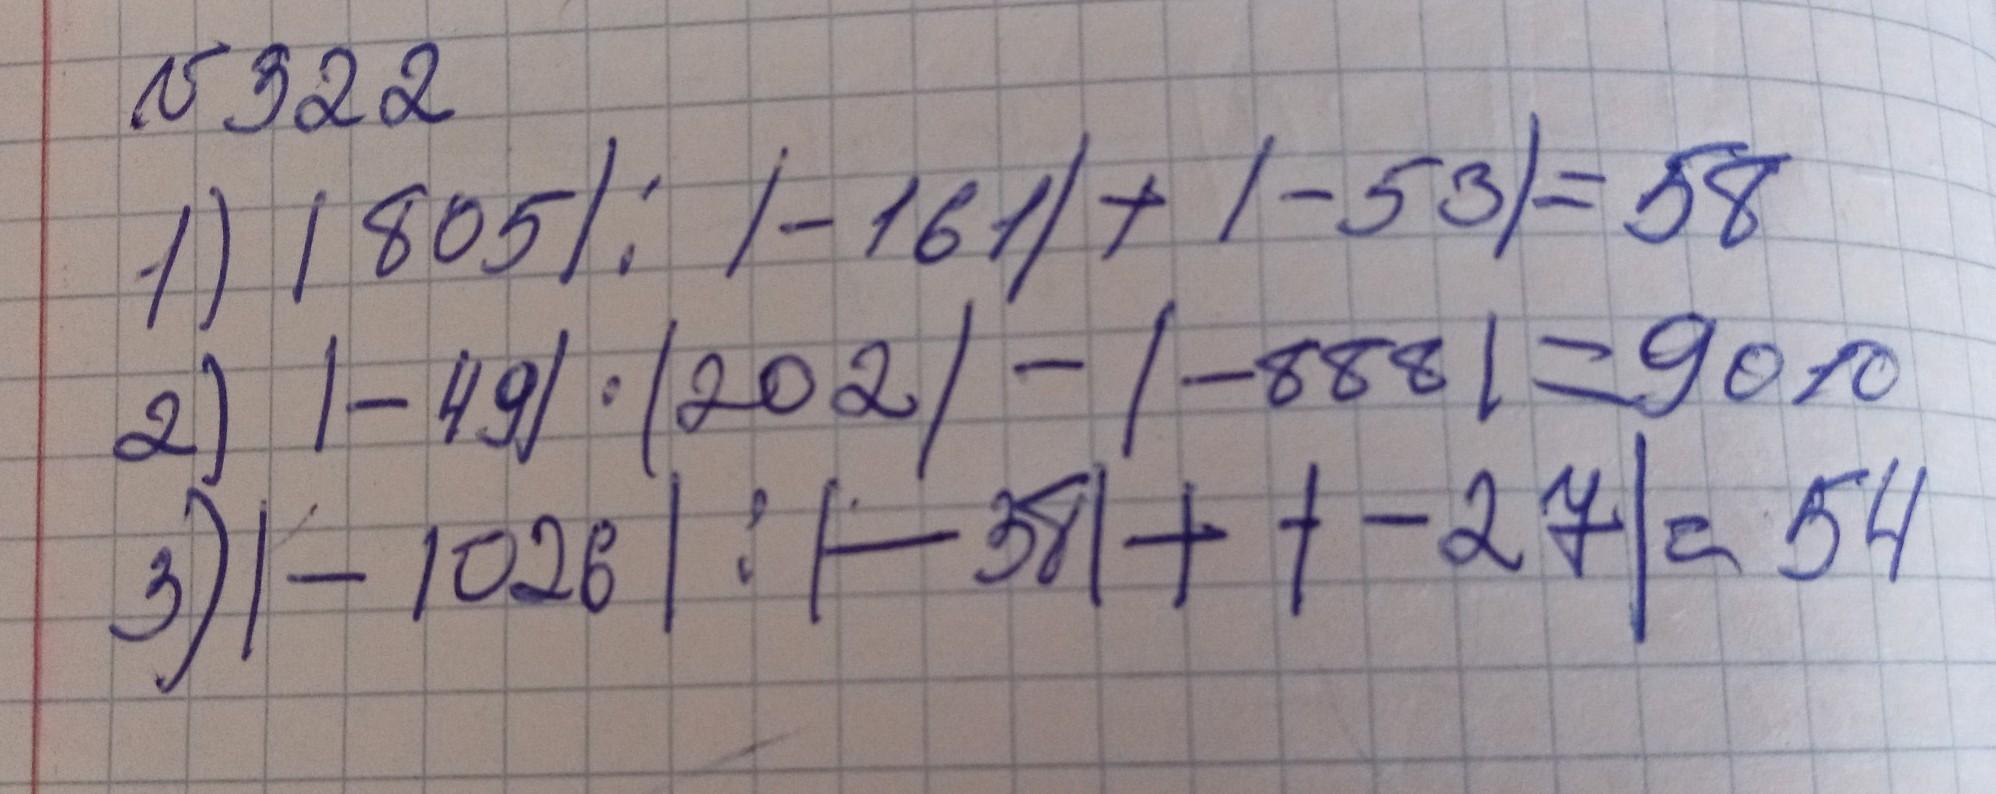 №322
1) |805| : |-161| + |-53| = 58
2) |-49| · |202| - |-888| = 9010
3) |-1026| : |-38| + |-27| = 54